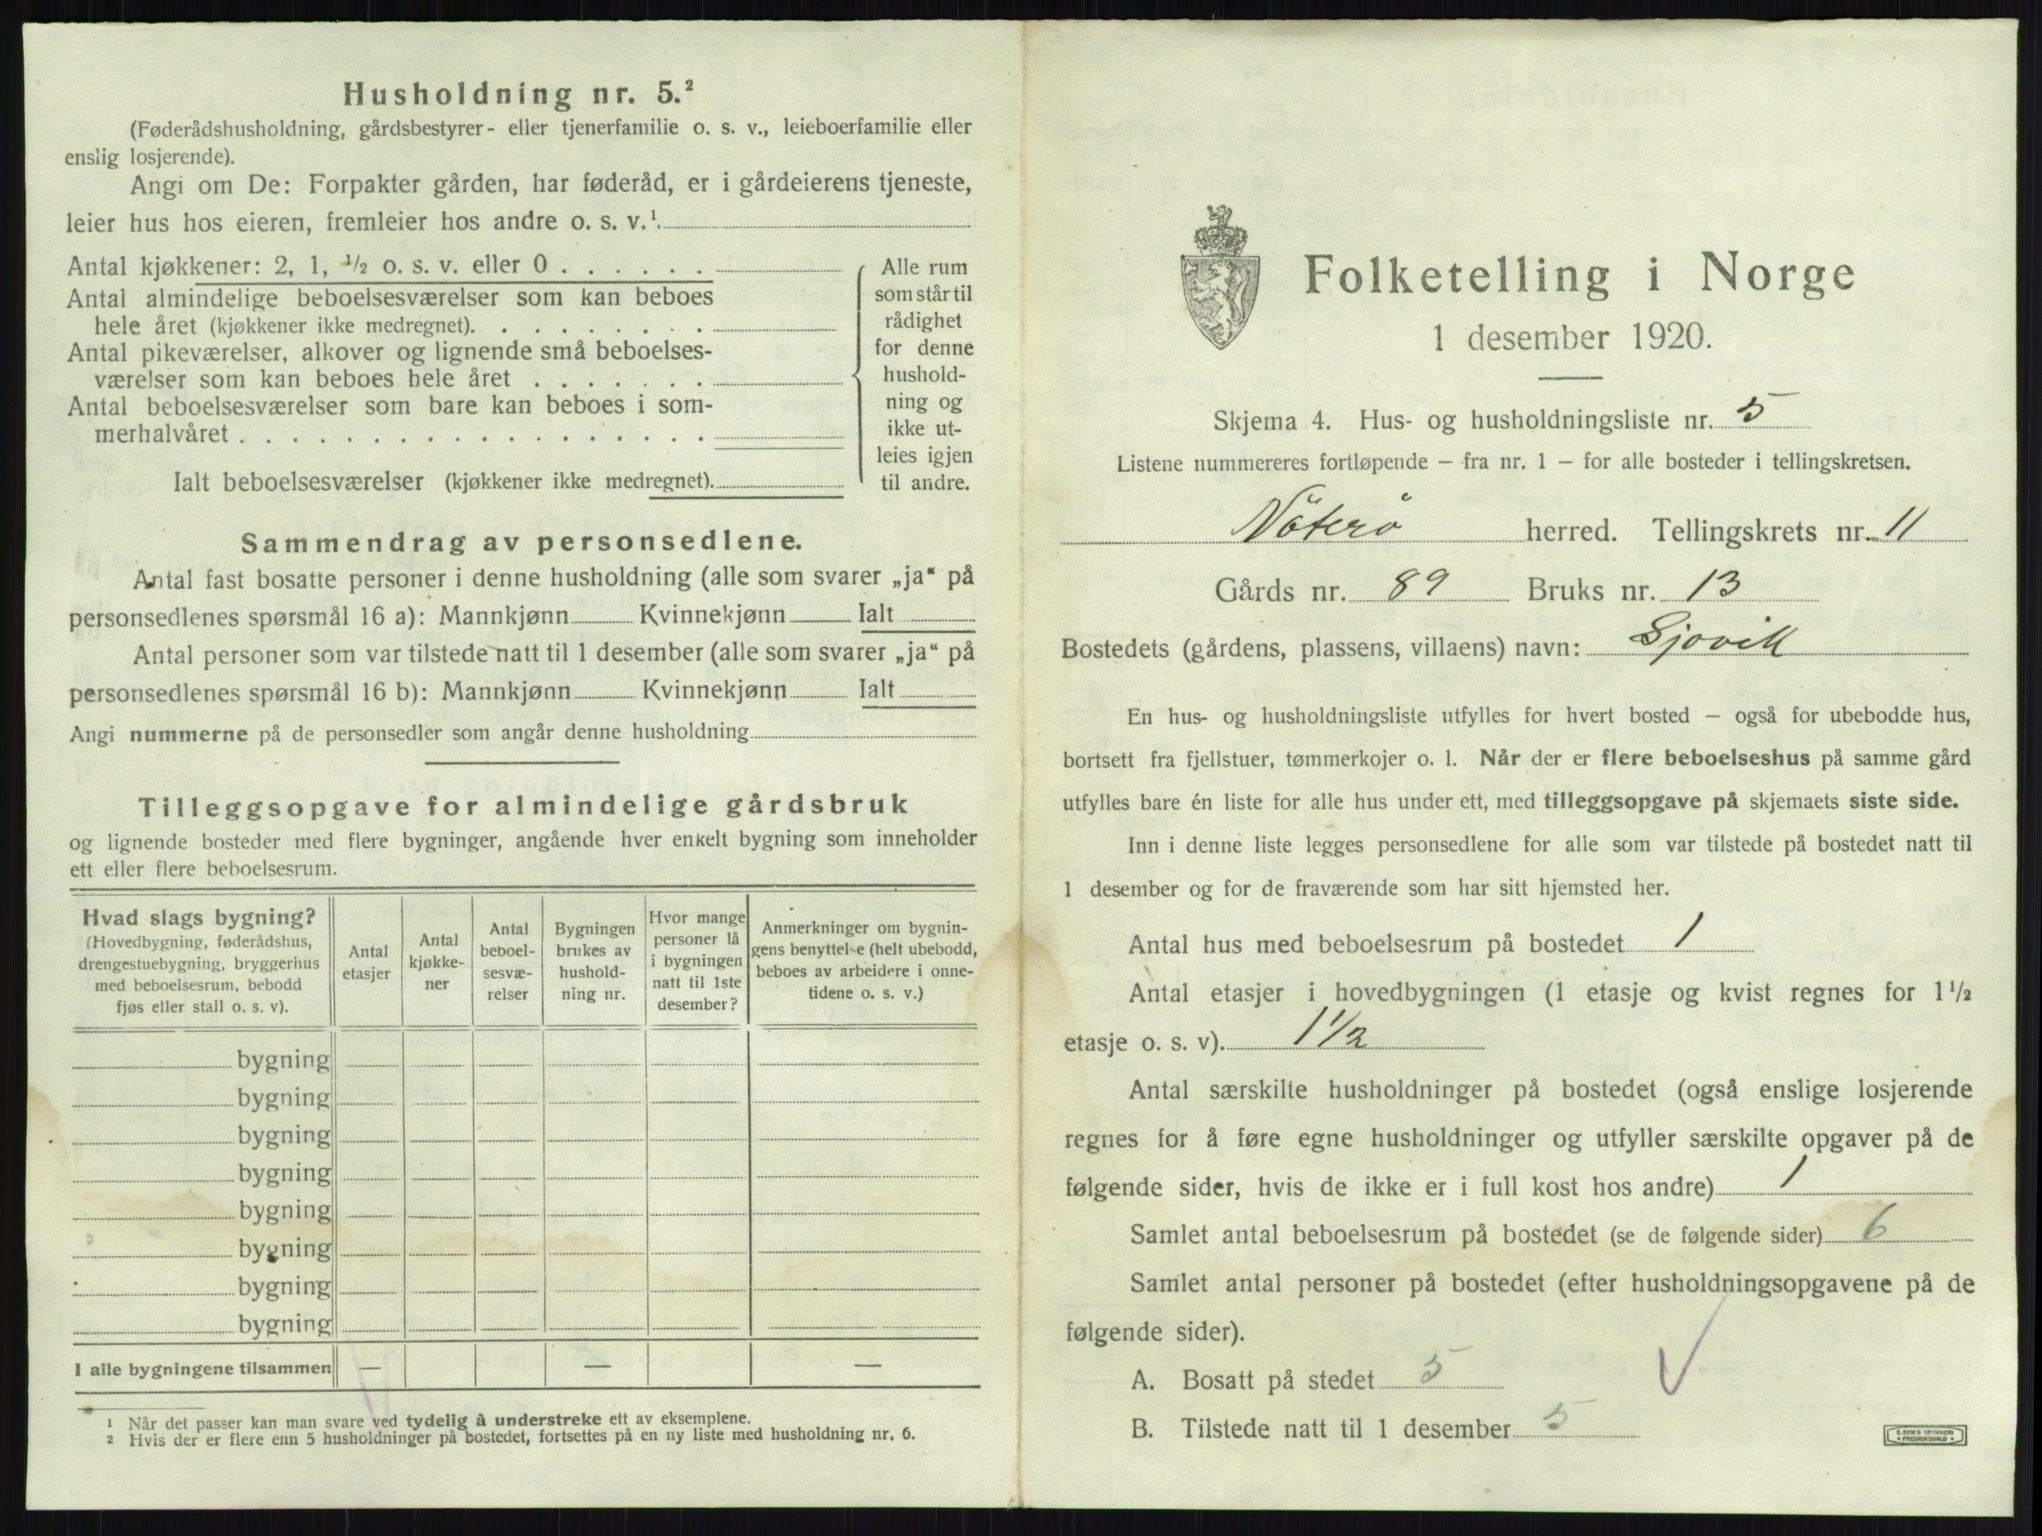 Husholdning nr. 5.²
(Føderådshusholdning, gårdsbestyrer- eller tjenerfamilie o. s. v., leieboerfamilie eller
enslig losjerende).
Angi om De: Forpakter gården, har føderåd, er i gårdeierens tjeneste,
leier hus hos eieren, fremleier hos andre o. s. v.¹.
Antal kjøkkener: 2, 1, ½ o. s. v. eller 0 . . . . . .
Antal almindelige beboelsesværelser som kan beboes
hele året (kjøkkener ikke medregnet). . . . . . . . .
Antal pikeværelser, alkover og lignende små beboelses-
værelser som kan beboes hele året . . . . . . .
Antal beboelsesværelser som bare kan beboes i som-
merhalvåret . . . . . . . . . . . . . . . . . .
Ialt beboelsesværelser (kjøkkener ikke medregnet).
Alle rum
som står til
rådighet
for denne
hushold-
ning og
ikke ut-
leies igjen
til andre.
Sammendrag av personsedlene.
Antal fast bosatte personer i denne husholdning (alle som svarer „ja“ på
personsedlenes spørsmål 16 a): Mannkjønn Kvinnekjønn Ialt
Antal personer som var tilstede natt til 1 desember (alle som svarer „ja“ på
personsedlenes spørsmål 16 b): Mannkjønn Kvinnekjønn Ialt
Angi nummerne på de personsedler som angår denne husholdning
Tilleggsopgave for almindelige gårdsbruk
og lignende bosteder med flere bygninger, angående hver enkelt bygning som inneholder
ett eller flere beboelsesrum.
Hvad slags bygning?
(Hovedbygning, føderådshus,
drengestuebygning, bryggerhus
med beboelsesrum, bebodd
fjøs eller stall o. s. v).
Antal
etasjer
Antal
kjøkke-
ner
Antal
beboel-
sesvæ-
relser
Bygningen
brukes av
hushold-
ning nr.
Hvor mange
personer lå
i bygningen
natt til 1ste
desember?
Anmerkninger om bygnin-
gens benyttelse (helt ubebodd,
beboes av arbeidere i onne-
tidene o. s. v.)
bygning
bygning
bygning
bygning
bygning
bygning
bygning
bygning
I alle bygningene tilsammen — — —
¹ Når det passer kan man svare ved tydelig å understreke ett av eksemplene.
² Hvis der er flere enn 5 husholdninger på bostedet, fortsettes på en ny liste med husholdning nr. 6.
Folketelling i Norge
1 desember 1920.
Skjema 4. Hus- og husholdningsliste nr. 5
Listene nummereres fortløpende – fra nr. 1 – for alle bosteder i tellingskretsen.
Nöterö herred. Tellingskrets nr. 11
Gårds nr. 89 Bruks nr. 13
Bostedets (gårdens, plassens, villaens) navn: Sjovik
En hus- og husholdningsliste utfylles for hvert bosted – også for ubebodde hus,
bortsett fra fjellstuer, tømmerkojer o. l. Når der er flere beboelseshus på samme gård
utfylles bare én liste for alle hus under ett, med tilleggsopgave på skjemaets siste side.
Inn i denne liste legges personsedlene for alle som var tilstede på bostedet natt til
1 desember og for de fraværende som har sitt hjemsted her.
Antal hus med beboelsesrum på bostedet 1
Antal etasjer i hovedbygningen (1 etasje og kvist regnes for 1½
etasje o. s. v). 1½
Antal særskilte husholdninger på bostedet (også enslige losjerende
regnes for å føre egne husholdninger og utfyller særskilte opgaver på de
følgende sider, hvis de ikke er i full kost hos andre) 1
Samlet antal beboelsesrum på bostedet (se de følgende sider) 6
Samlet antal personer på bostedet (efter husholdningsopgavene på de
følgende sider).
A. Bosatt på stedet 5
B. Tilstede natt til 1 desember 5